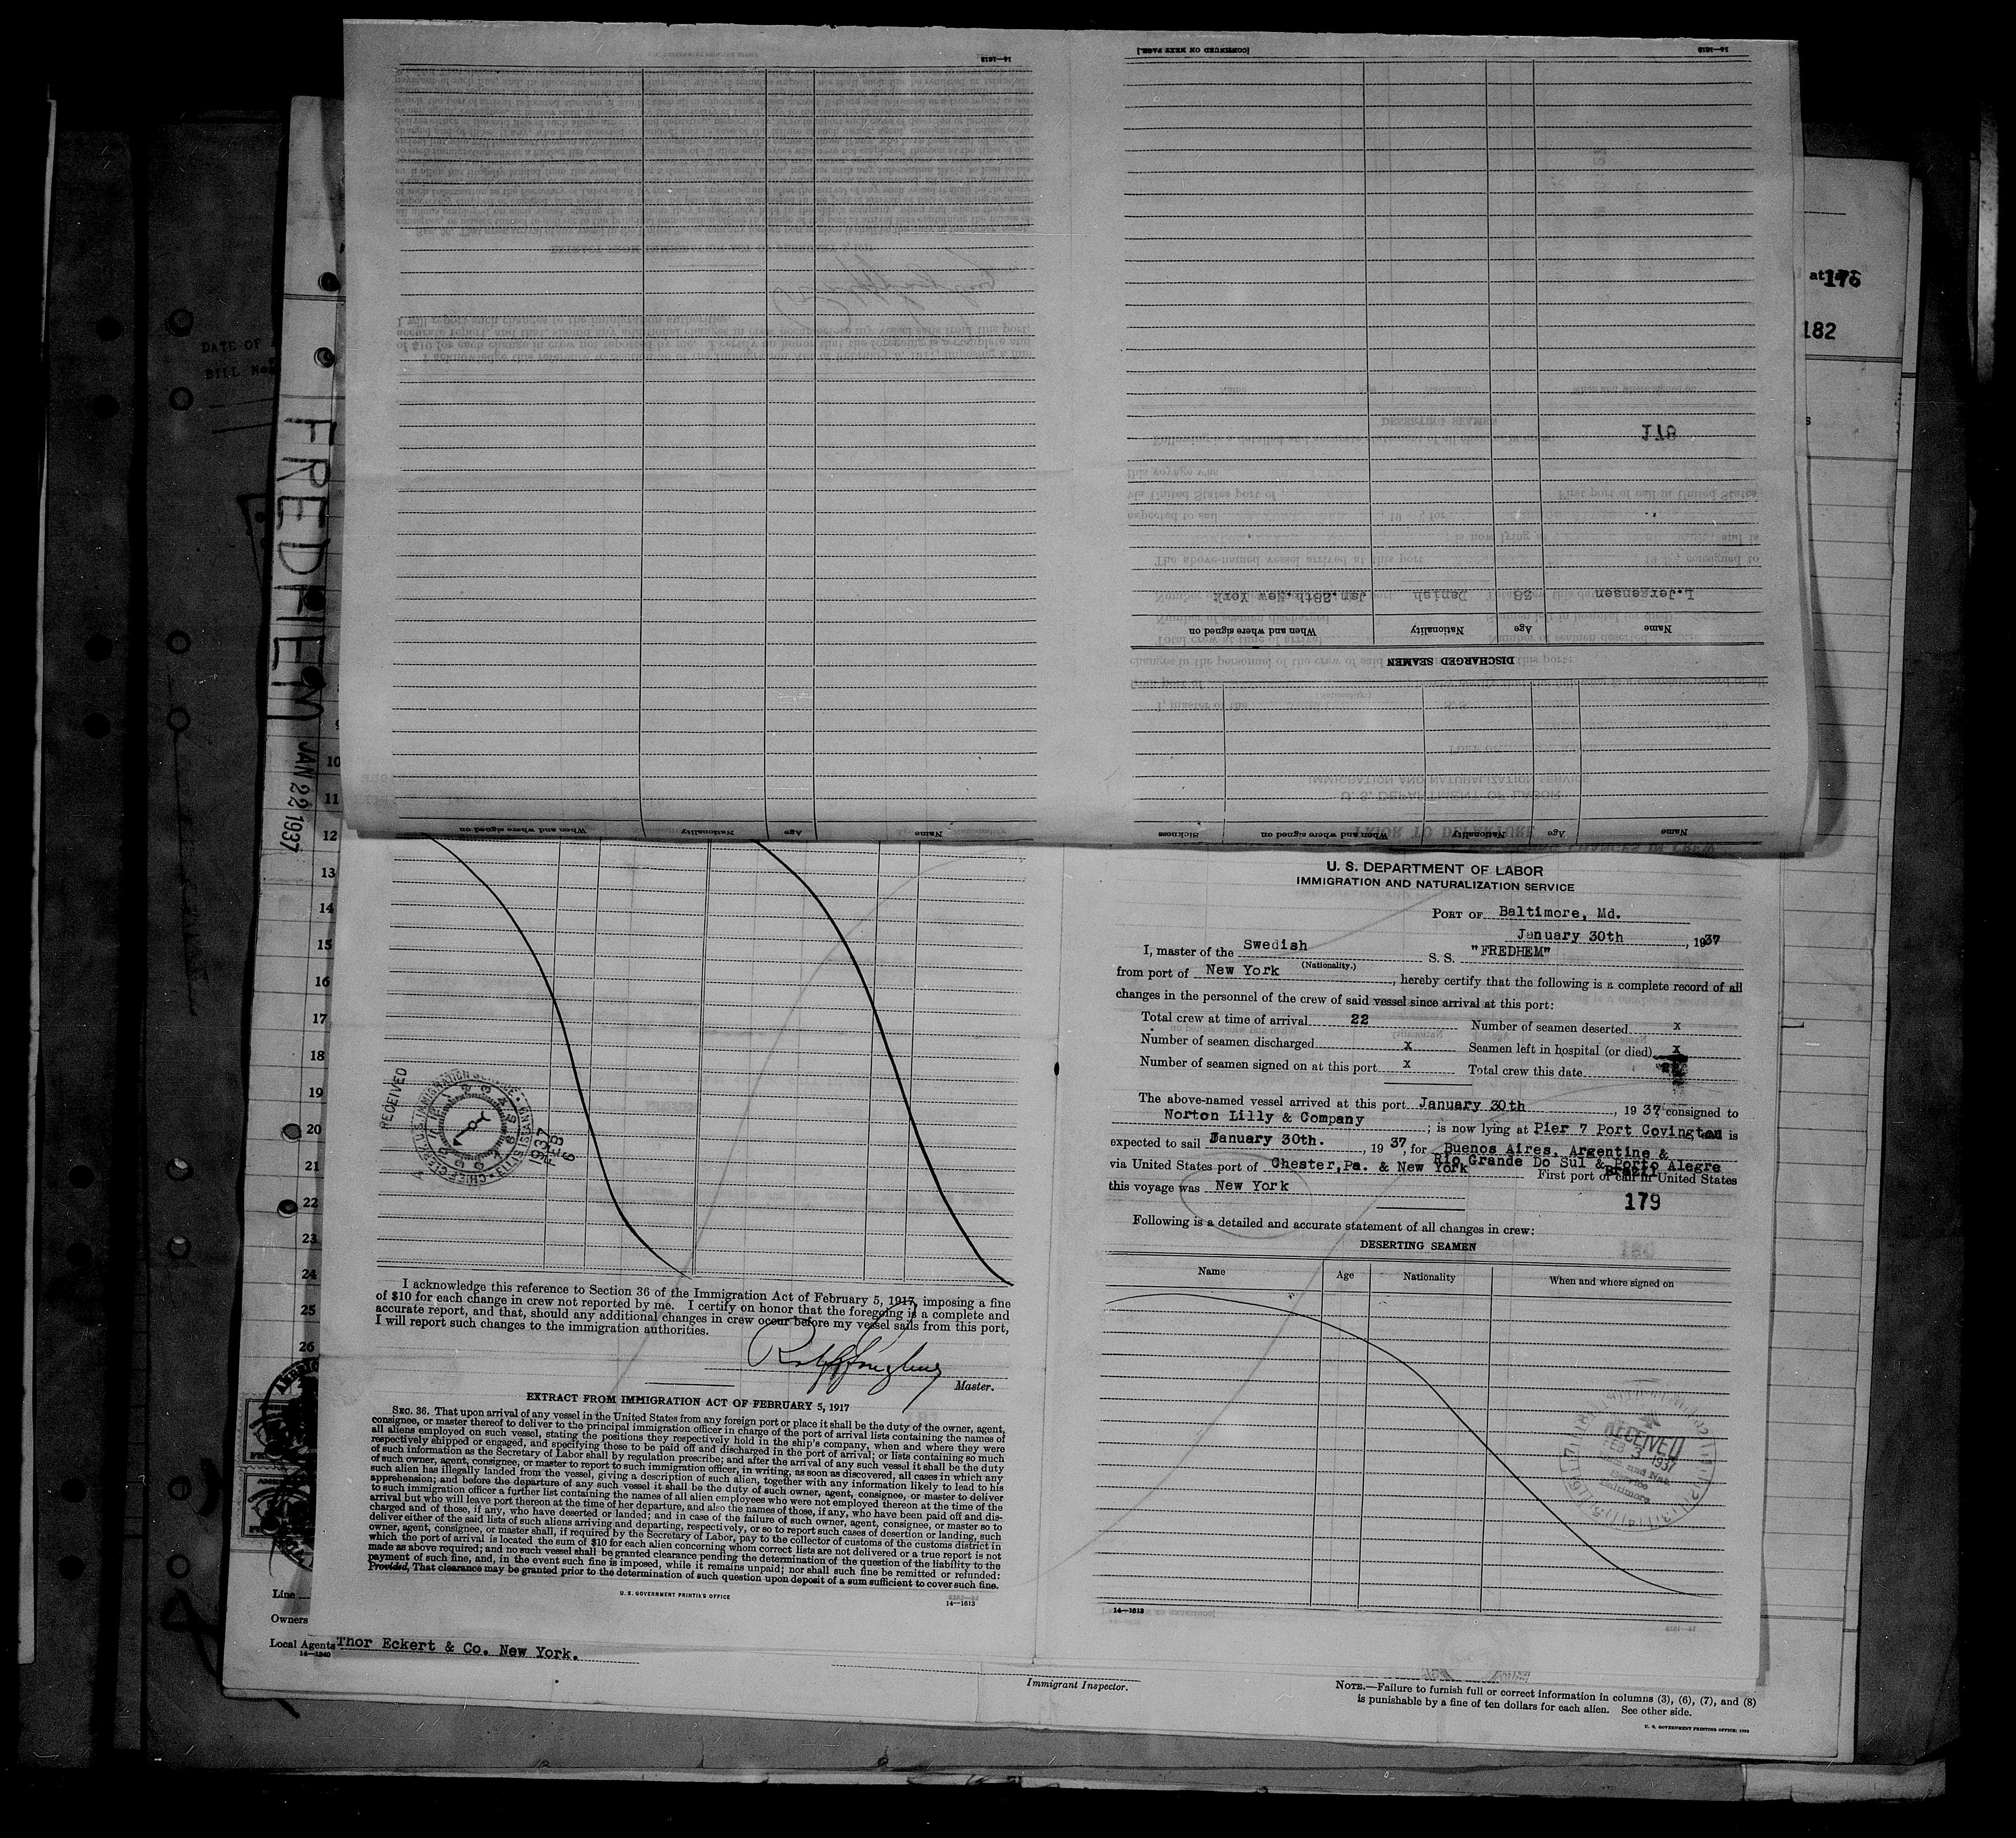 14—1613
[CONTINUED ON NEXT PAGE.]
14—1613
176
182
DATE OF
BILL No.
FREDHEM JAN 22 1937
178
I. Jorgensen 28 Danish Jan.28th, New York
Name Age Nationality When and where signed on
DISCHARGED SEAMEN
Name Age Nationality When and where signed on Sickness
Name Age Nationality When and where signed on
10
11
12
13
14
15
16
17
18
19
20
21
22
23
24
25
26
RECEIVED
1937
FEB
6
I acknowledge this reference to Section 36 of the Immigration Act of February 5, 1917, imposing a fine
of $10 for each change in crew not reported by me. I certify on honor that the foregoing is a complete and
accurate report, and that, should any additional changes in crew occur before my vessel sails from this port,
I will report such changes to the immigration authorities.
Master.
EXTRACT FROM IMMIGRATION ACT OF FEBRUARY 5, 1917
SEC. 36. That upon arrival of any vessel in the United States from any foreign port or place it shall be the duty of the owner, agent,
consignee, or master thereof to deliver to the principal immigration officer in charge of the port of arrival lists containing the names of
all aliens employed on such vessel, stating the positions they respectively hold in the ship's company, when and where they were
respectively shipped or engaged, and specifying those to be paid off and discharged in the port of arrival; or lists containing so much
of such information as the Secretary of Labor shall by regulation prescribe; and after the arrival of any such vessel it shall be the duty
of such owner, agent, consignee, or master to report to such immigration officer, in writing, as soon as discovered, all cases in which any
such alien has illegally landed from the vessel, giving a description of such alien, together with any information likely to lead to his
apprehension; and before the departure of any such vessel it shall be the duty of such owner, agent, consignee, or master to deliver
to such immigration officer a further list containing the names of all alien employees who were not employed thereon at the time of the
arrival but who will leave port thereon at the time of her departure, and also the names of those, if any, who have been paid off and dis-
charged and of those, if any, who have deserted or landed; and in case of the failure of such owner, agent, consignee, or master so to
deliver either of the said lists of such aliens arriving and departing, respectively, or so to report such cases of desertion or landing, such
owner, agent, consignee, or master shall, if required by the Secretary of Labor, pay to the collector of customs of the customs district in
which the port of arrival is located the sum of $10 for each alien concerning whom correct lists are not delivered or a true report is not
made as above required; and no such vessel shall be granted clearance pending the determination of the question of the liability to the
payment of such fine, and, in the event such fine is imposed, while it remains unpaid; nor shall such fine be remitted or refunded:
Provided, That clearance may be granted prior to the determination of such question upon deposit of a sum sufficient to cover such fine.
U. S. GOVERNMENT PRINTING OFFICE
14—1613
Line
Owners
Local Agents Thor Eckert & Co. New York.
14—1240
U. S. DEPARTMENT OF LABOR
IMMIGRATION AND NATURALIZATION SERVICE
PORT OF Baltimore, Md.
January 30th, 1937
I, master of the Swedish S. S. "FREDHEM"
(Nationality.)
from port of New York, hereby certify that the following is a complete record of all
changes in the personnel of the crew of said vessel since arrival at this port:
Total crew at time of arrival 22 Number of seamen deserted x
Number of seamen discharged x Seamen left in hospital (or died) x
Number of seamen signed on at this port x Total crew this date
The above-named vessel arrived at this port January 30th, 1937 consigned to
Norton Lilly & Company; is now lying at Pier 7 Port Covington and is
expected to sail January 30th., 1937, for Buenos Aires, Argentine &
Rio Grande Do Sul & Porto Alegre
Brazil
via United States port of Chester,Pa. & New York First port of call in United States
this voyage was New York
179
Following is a detailed and accurate statement of all changes in crew:
DESERTING SEAMEN
Name Age Nationality When and where signed on
RECEIVED
FEB 3 1937
Baltimore
14—1613
Immigrant Inspector.
NOTE.—Failure to furnish full or correct information in columns (3), (6), (7), and (8)
is punishable by a fine of ten dollars for each alien. See other side.
U. S. GOVERNMENT PRINTING OFFICE: